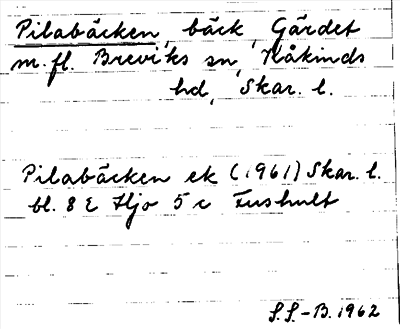 Pilabäcken, bäck, Gärdet
m.fl. Breviks sn, Kåkinds
hd, Skar. l.
Pilabäcken ek (1961) Skar. l.
bl. 8 E Hjo 5 c Fushult
S.S.-B. 1962